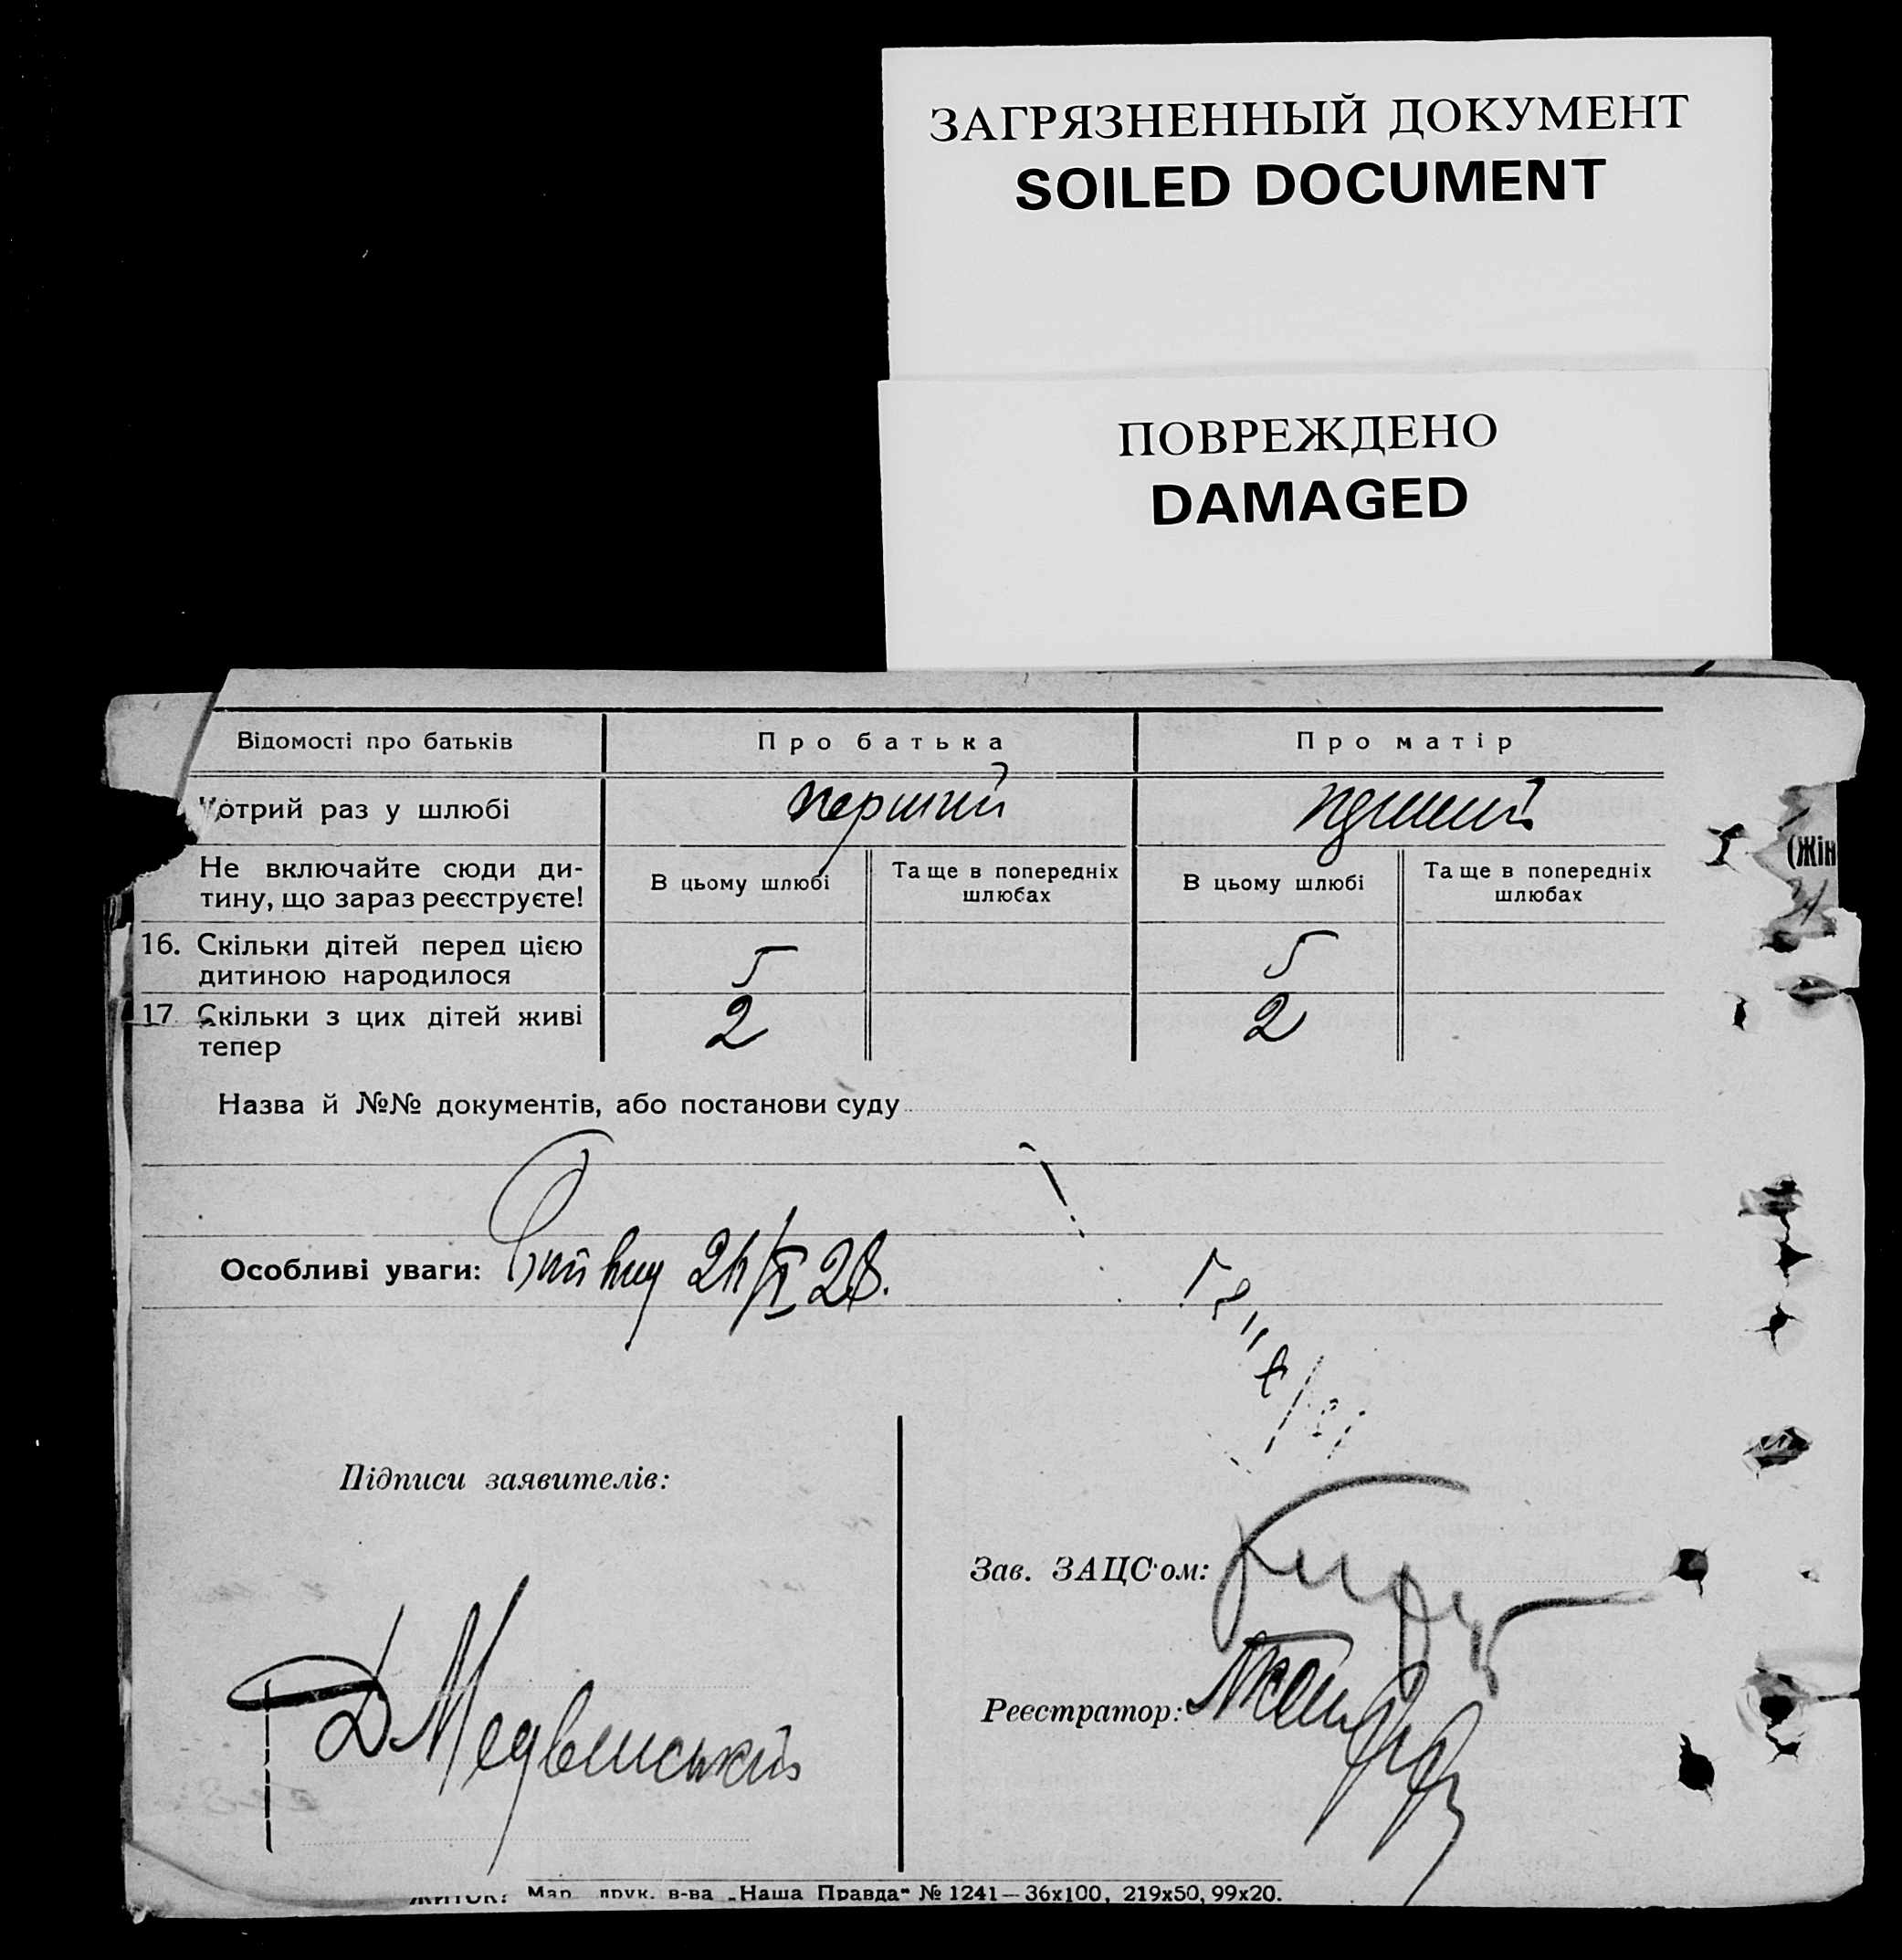 ЗАГРЯЗНЕННЫЙ ДОКУМЕНТ
SOILED DOCUMENT
ПОВРЕЖДЕНО
DAMAGED
Відомості про батьків Про батька Про матір
Котрий раз у шлюбі перший перший
Не включайте сюди ди-
тину, що зараз реєструєте!
В цьому шлюбі
Та ще в попередніх
шлюбах
В цьому шлюбі
Та ще в попередніх
шлюбах
(Жін
16. Скільки дітей перед цією
дитиною народилося
5 5
17 Скільки з цих дітей живі
тепер
2 2
Назва й №№ документів, або постанови суду
Особливі уваги:
28.
Підписи заявителів:
Зав. ЗАЦС'ом:
Д Медвенський
Реєстратор:
друк. в-ва „Наша Правда" № 1241—36х100, 219х50, 99х20.